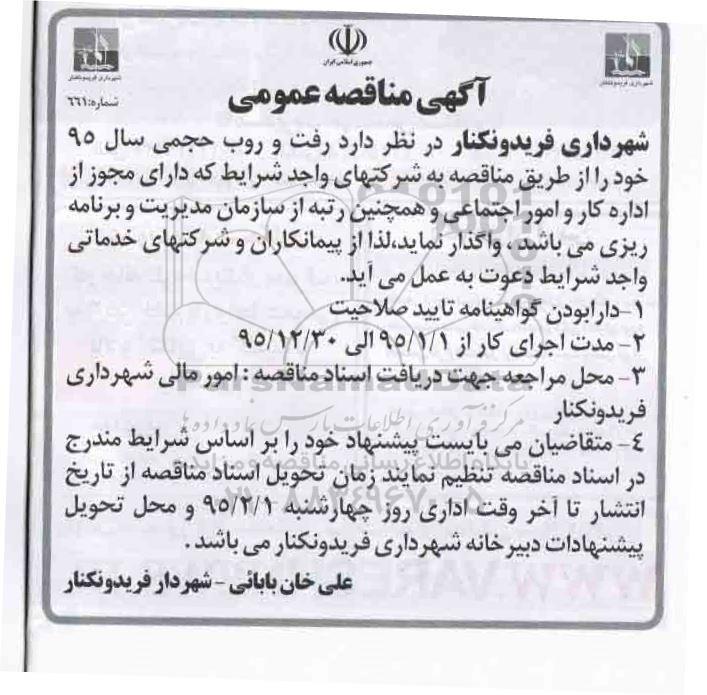 جمهوری اسلامی ایران
شهرداری فریدونکنار
شهرداری فریدونکنار
شماره: ۶۶۱
آگهی مناقصه عمومی
شهرداری فریدونکنار در نظر دارد رفت و روب حجمی سال ۹۵
خود را از طریق مناقصه به شرکتهای واجد شرایط که دارای مجوز از
اداره کار و امور اجتماعی و همچنین رتبه از سازمان مدیریت و برنامه
ریزی می باشد ، واگذار نماید،لذا از پیمانکاران و شرکتهای خدماتی
واجد شرایط دعوت به عمل می آید.
۱-دارابودن گواهینامه تایید صلاحیت
۲- مدت اجرای کار از ۹۵/۱/۱ الی ۹۵/۱۲/۳۰
۳- محل مراجعه جهت دریافت اسناد مناقصه : امور مالی شهرداری
فریدونکنار
٤- متقاضیان می بایست پیشنهاد خود را بر اساس شرایط مندرج
در اسناد مناقصه تنظیم نمایند زمان تحویل اسناد مناقصه از تاریخ
انتشار تا آخر وقت اداری روز چهارشنبه ۹۵/۲/۱ و محل تحویل
پیشنهادات دبیرخانه شهرداری فریدونکنار می باشد .
علی خان بابائی - شهردار فریدونکنار
ParsNamadData
مرکز فرآوری اطلاعات پارس نماد داده ها
پایگاه اطلاع رسانی مناقصه و مزایده